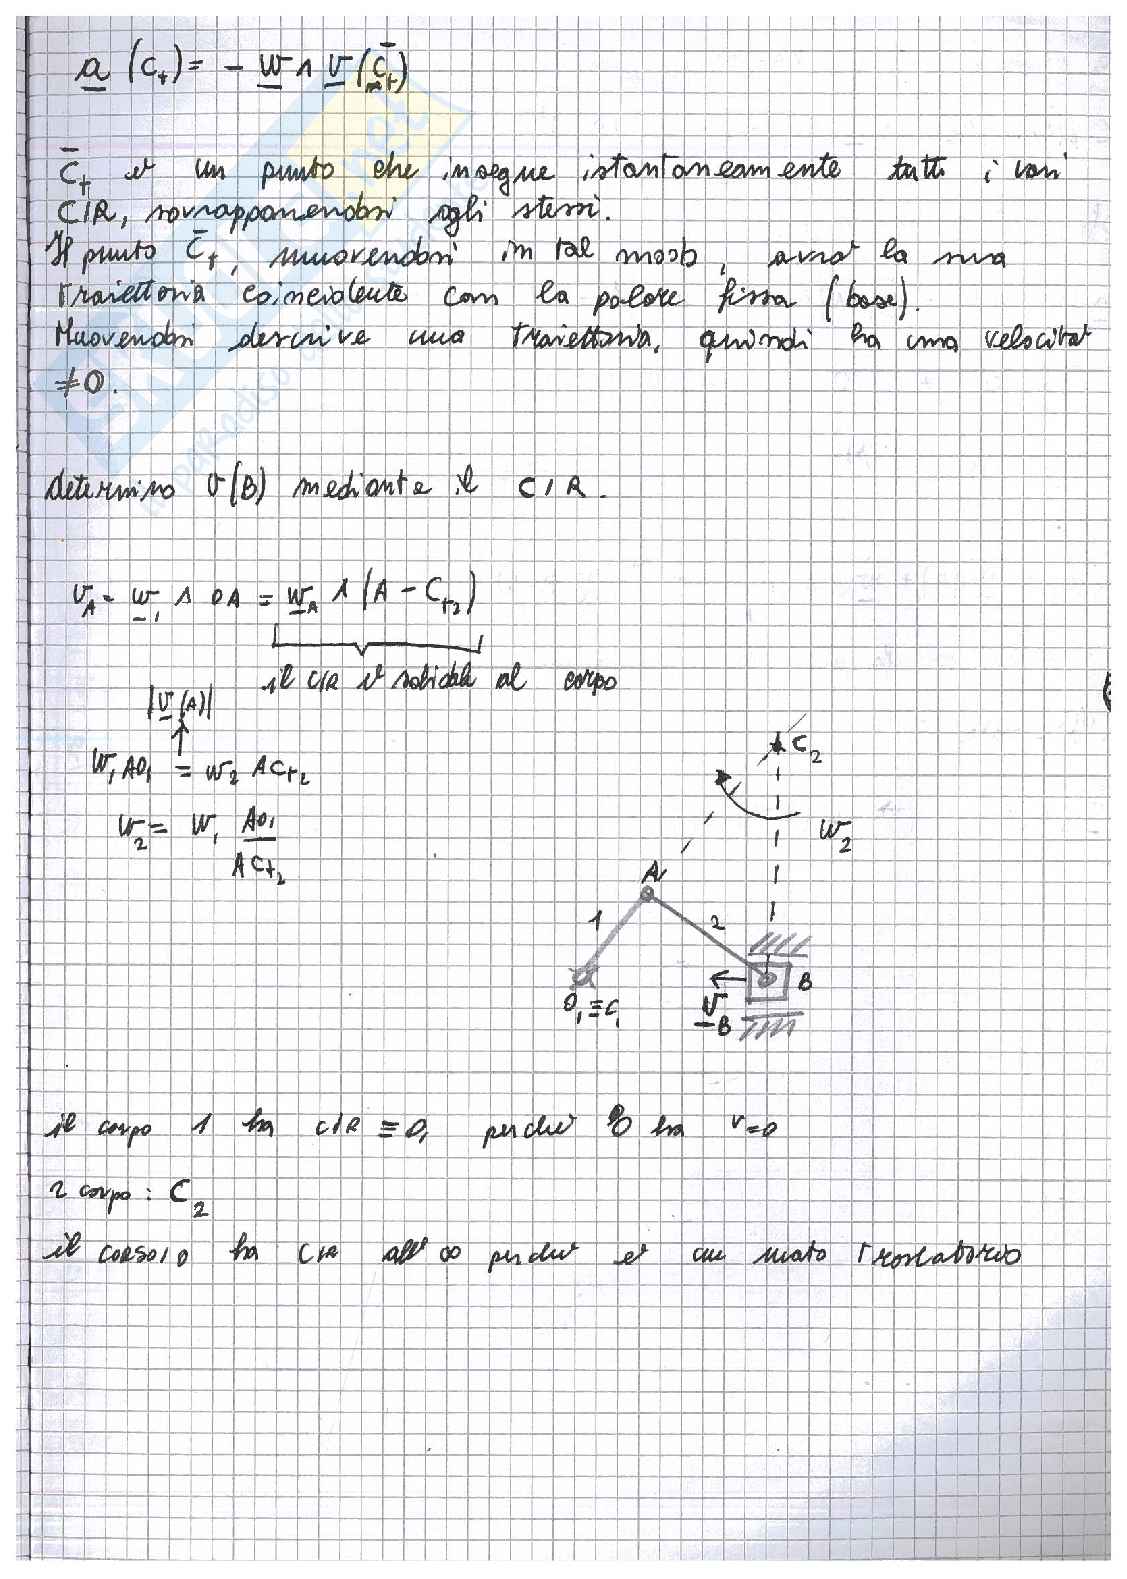 a (C_t) = - w ∧ v (C̄_t)
C̄_t è un punto che insegue istantaneamente tutti i vari
CIR, sovrapponendosi agli stessi.
Il punto C̄_t, muovendosi in tal modo, avrà la sua
traiettoria coincidente con la polare fissa (base).
Muovendosi descrive una traiettoria, quindi ha una velocità
≠0.
determino v(B) mediante il CIR.
v_A = w_1 ∧ OA = w_A ∧ (A - C_t2)
il CIR è solidale al corpo
|v(A)|
w_1 AO_1 = w_2 AC_t2
w_2 = w_1 AO_1 / AC_t2
C_2
w_2
A
1
2
B
O_1 ≡ C_1
v_B
il corpo 1 ha CIR ≡ O_1 perché O ha v=0
2 corpo : C_2
il corsoio ha CIR all' ∞ perché è un moto traslatorio
SKUOLA.net
il paradiso dello studente